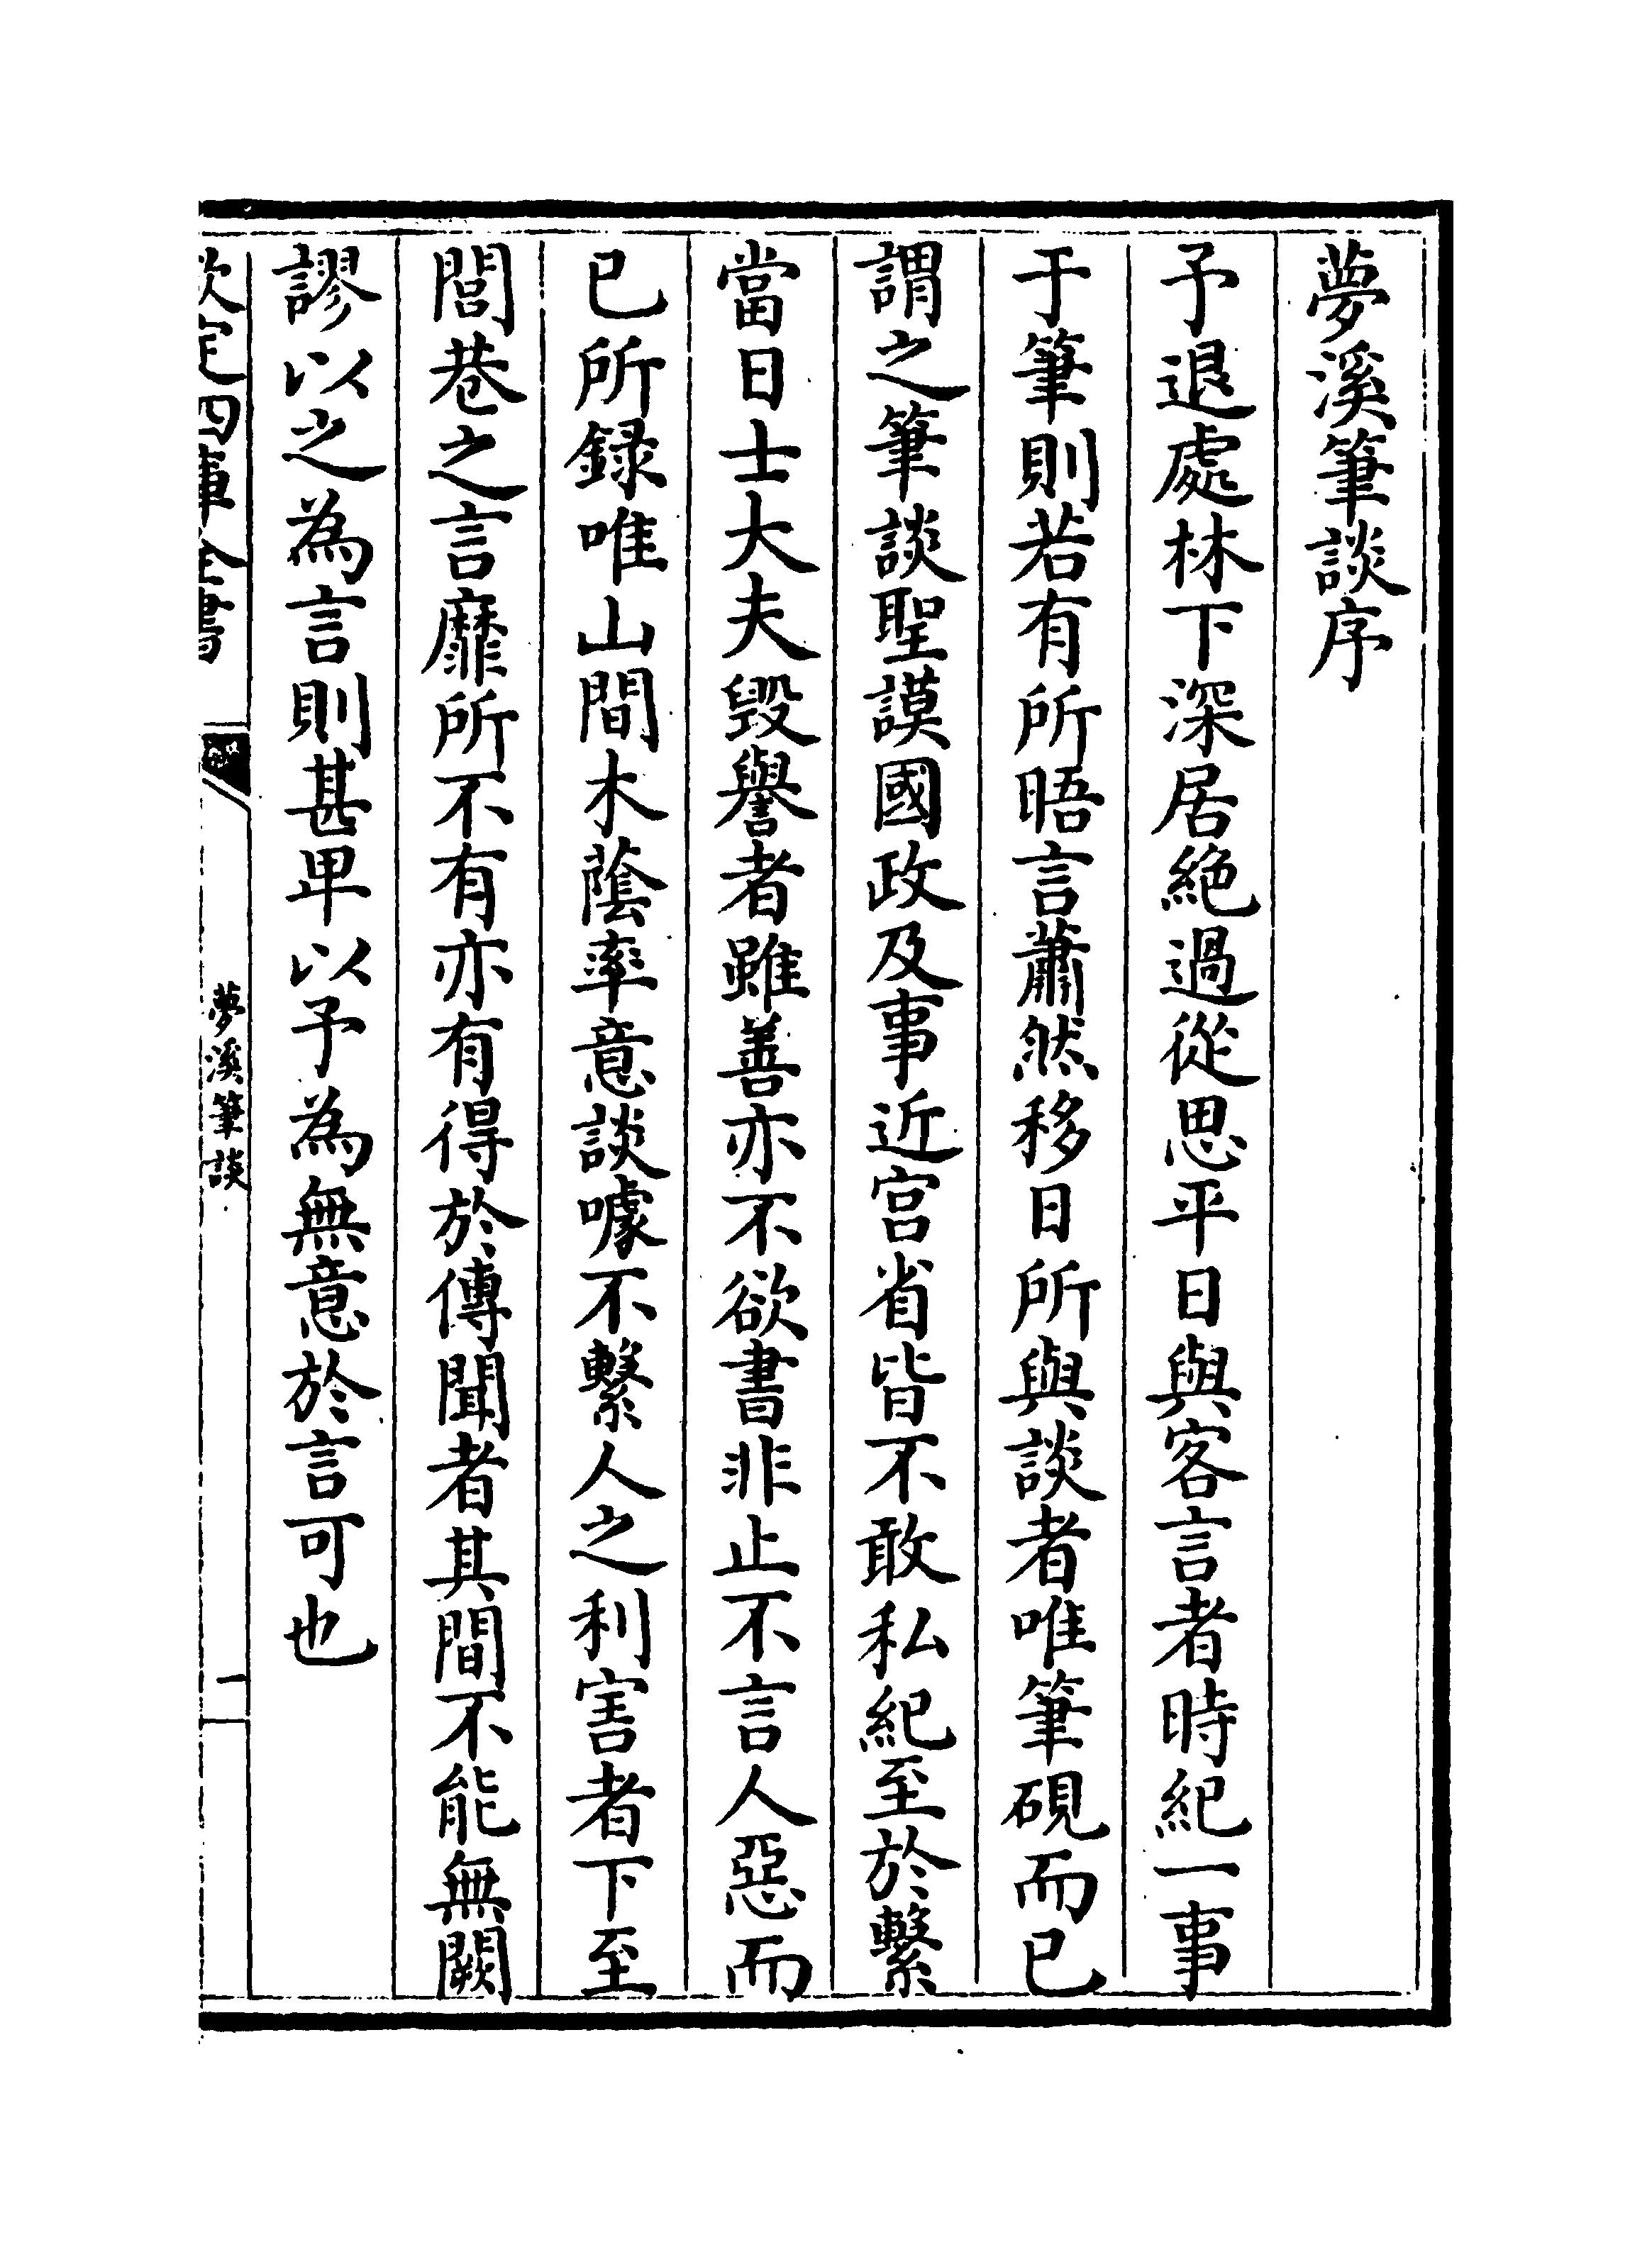 夢溪筆談序
予退處林下深居絶過從思平日與客言者時紀一事
于筆則若有所晤言蕭然移日所與談者唯筆硯而已
謂之筆談聖謨國政及事近宫省皆不敢私紀至於繫
當日士大夫毀譽者雖善亦不欲書非止不言人惡而
已所録唯山間木蔭率意談噱不繫人之利害者下至
閭巷之言靡所不有亦有得於傳聞者其間不能無闕
謬以之為言則甚卑以予為無意於言可也
欽定四庫全書
夢溪筆談
一